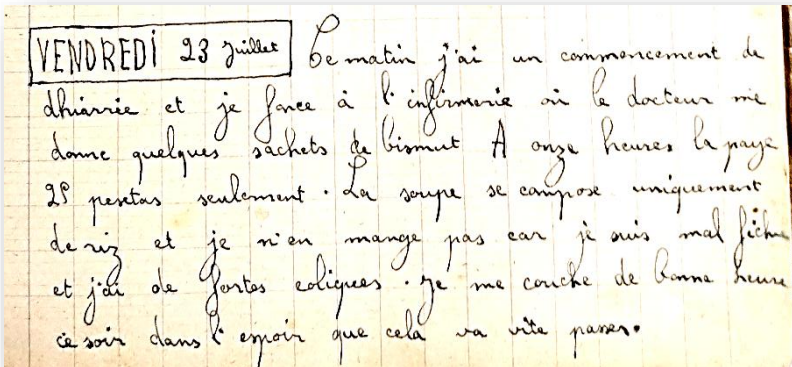 VENDREDI 23 Juillet Ce matin j'ai un commencement de
dhiarrie et je fonce à l'infirmerie où le docteur me
donne quelques sachets de bismut A onze heures la paye
25 pesetas seulement. La soupe se compose uniquement
de riz et je n'en mange pas car je suis mal fichu
et j'ai de fortes coliques. Je me couche de bonne heure
ce soir dans l'espoir que cela va vite passer.